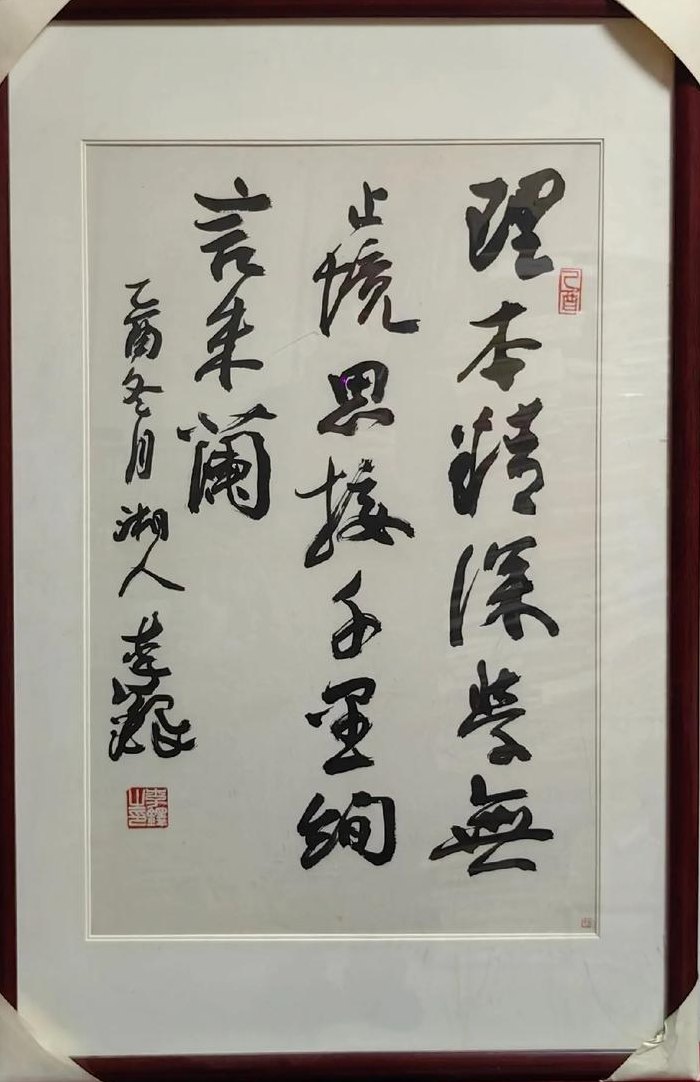 理本精深学無
止境思接千里絢
言来蘭
乙酉冬月湘人李鐸
乙酉
李鐸之印